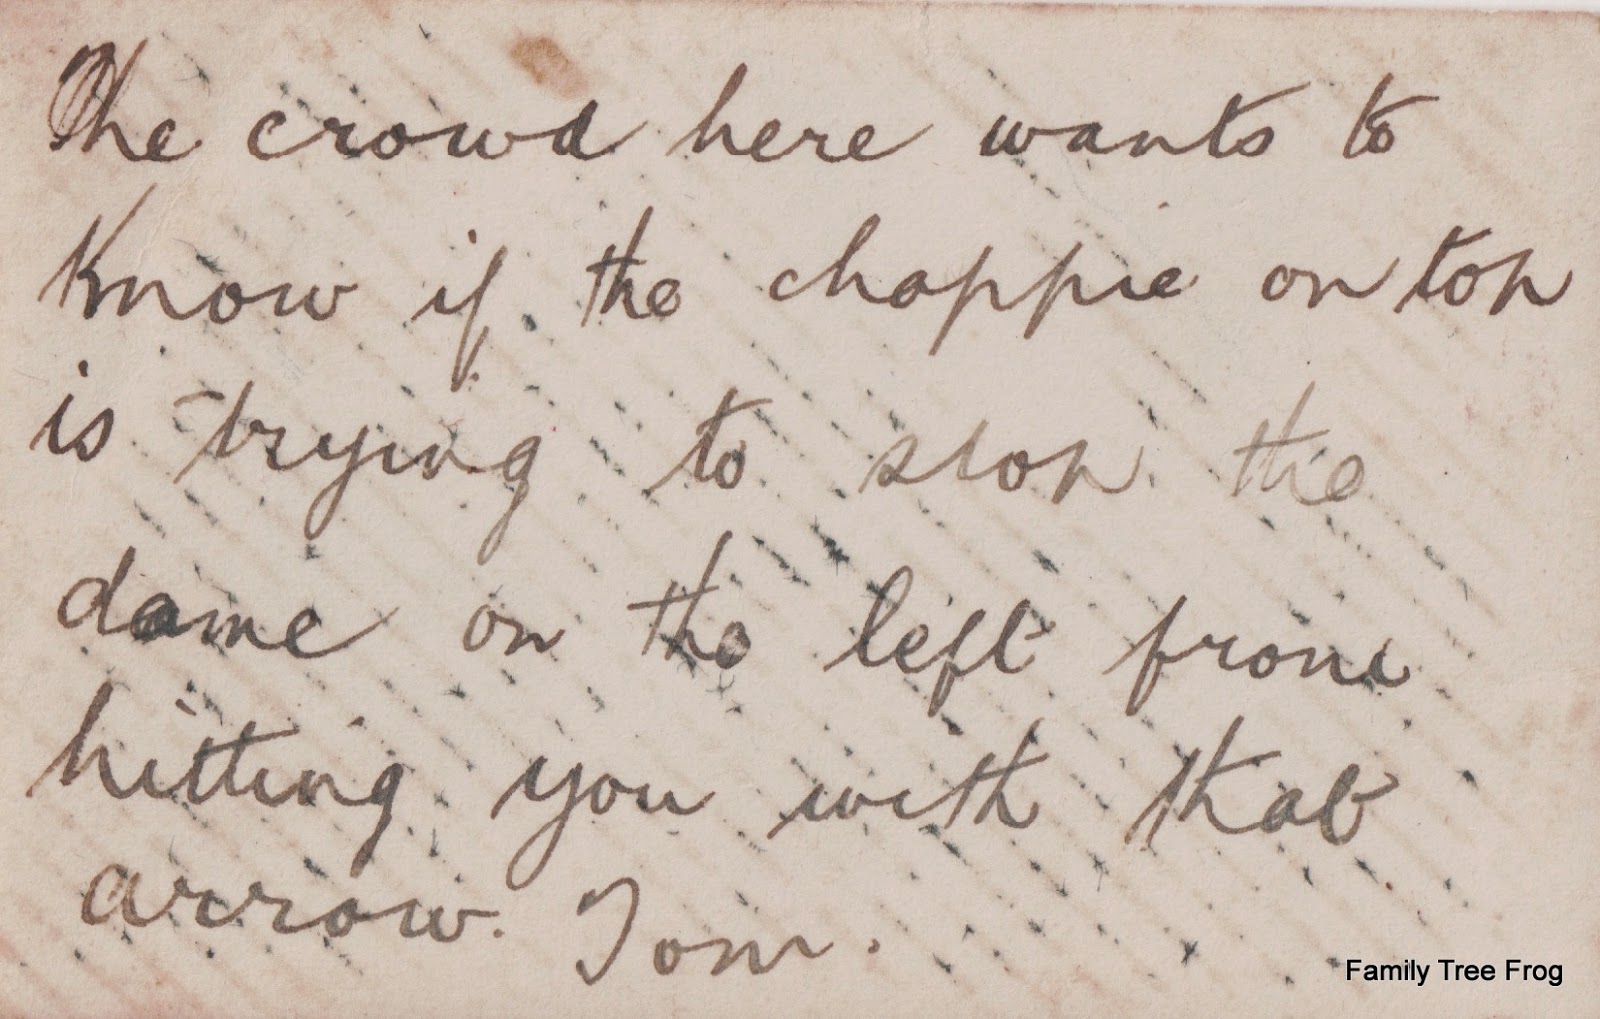 The crowd here wants to
know if the chappie on top
is trying to stop the
dame on the left from
hitting you with that
arrow. Tom.
Family Tree Frog